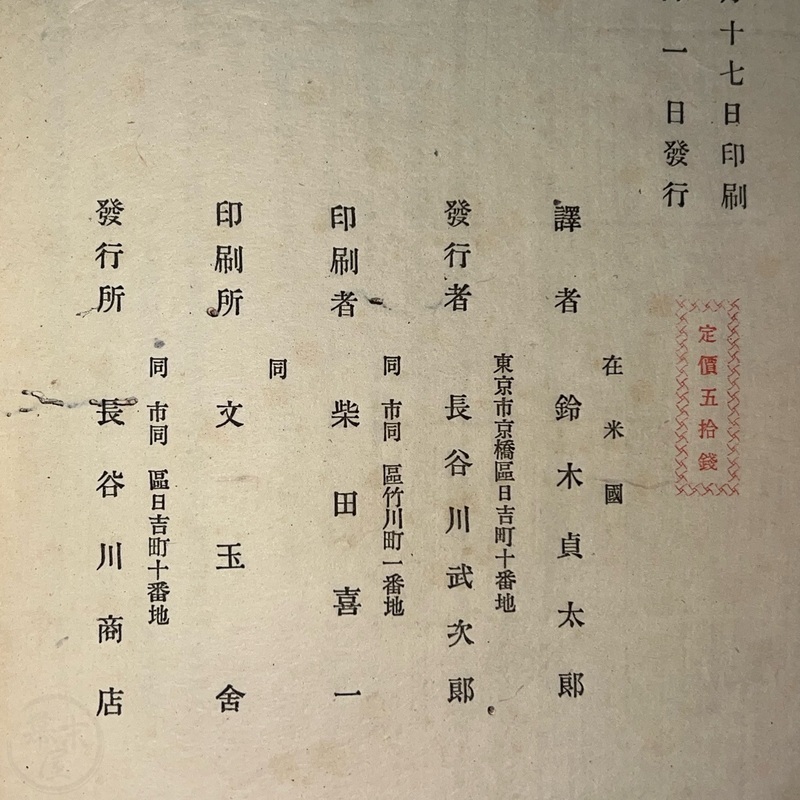 十七日印刷
一日發行
定價五拾錢
在米國
譯者 鈴木貞太郎
東京市京橋區日吉町十番地
發行者 長谷川武次郎
同市同區竹川町一番地
印刷者 柴田喜一
同
印刷所 文玉舍
同市同區日吉町十番地
發行所 長谷川商店